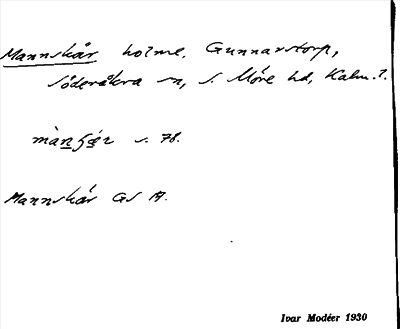 Mannskär holme, Gunnarstorp,
Söderåkra sn, S. Möre hd, Kalm. l.
s. 78.
Mannskär GS A.
Ivar Modéer 1930